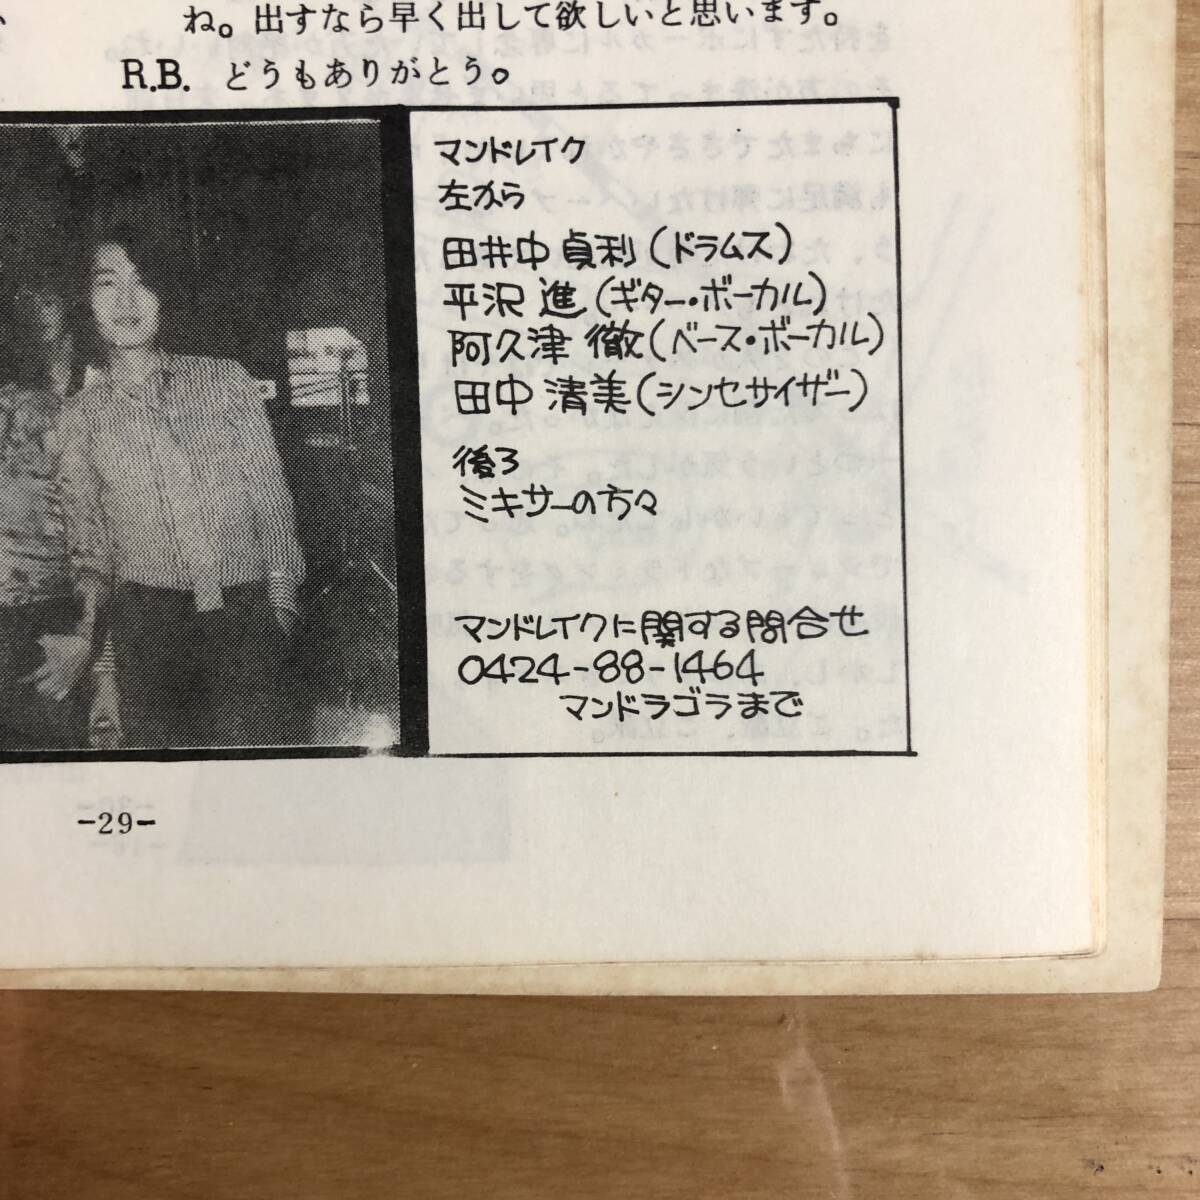 ね。出すなら早く出して欲しいと思います。
R.B. どうもありがとう。
マンドレイク
左から
田井中 貞利(ドラムス)
平沢 進(ギター・ボーカル)
阿久津 徹(ベース・ボーカル)
田中 清美(シンセサイザー)
後ろ
ミキサーの方々
マンドレイクに関する問合せ
0424-88-1464
マンドラゴラまで
-29-